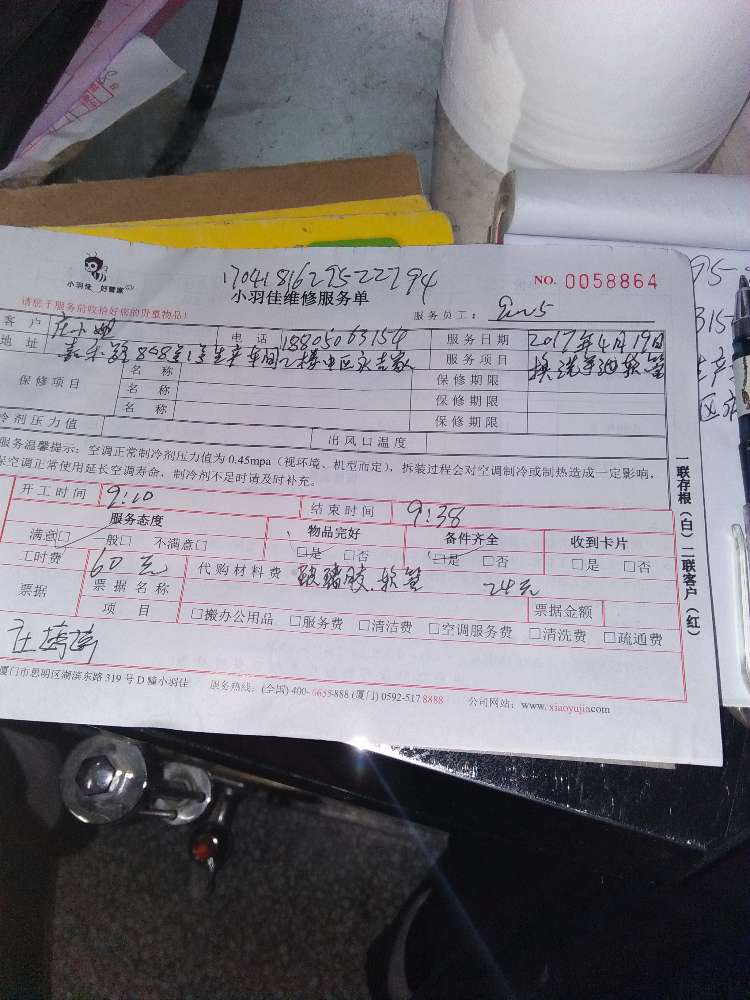 小羽佳 好管家
1704181629522794
小羽佳维修服务单
NO. 0058864
请您于服务前收拾好您的贵重物品!
服务员工:
客户 庄小姐 电话 18805063154 服务日期 2017年4月19日
地址 嘉禾路 楼 服务项目 换洗手池软管
保修项目 名称 保修期限
名称 保修期限
名称 保修期限
冷剂压力值 出风口温度
服务温馨提示:空调正常制冷剂压力值为0.45mpa(视环境、机型而定),拆装过程会对空调制冷或制热造成一定影响,
保空调正常使用延长空调寿命,制冷剂不足时请及时补充。
开工时间 9:10 结束时间 9:38
服务态度 物品完好 备件齐全 收到卡片
满意□ 一般□ 不满意□ □是 □否 □是 □否 □是 □否
工时费 60元 代购材料费 玻璃胶.软管 24元
票据 票据名称 票据金额
项目 □搬办公用品 □服务费 □清洁费 □空调服务费 □清洗费 □疏通费
厦门市思明区湖滨东路319号D幢小羽佳 服务热线:(全国)400-6655-888 (厦门)0592-517 8888 公司网站:www.xiaoyujia.com
一联存根(白)二联客户(红)